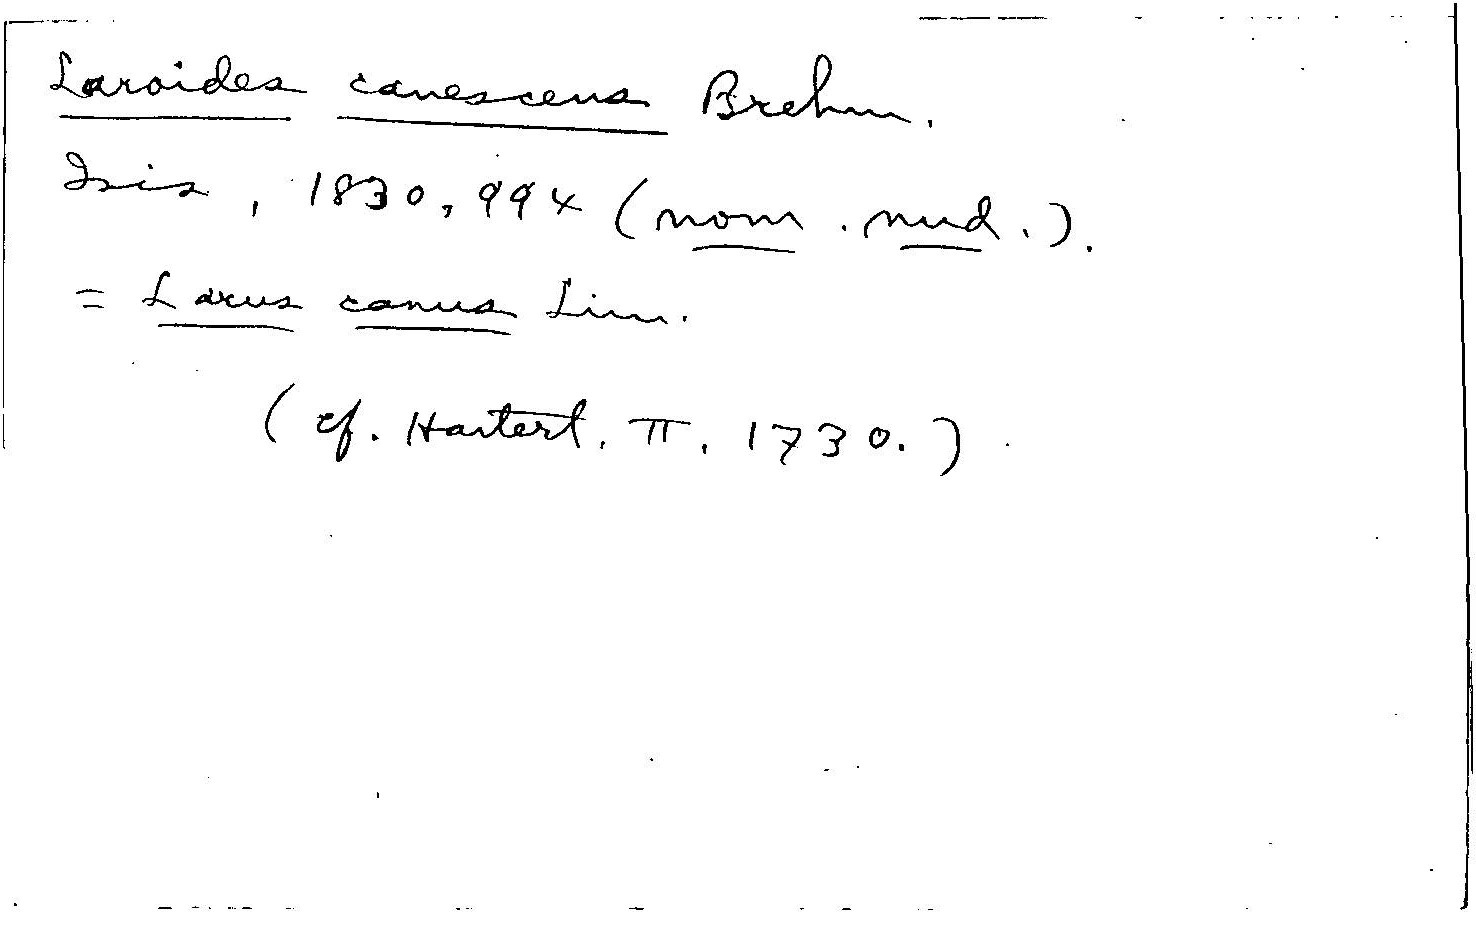 Laroides canescens Brehm.
Isis, 1830, 994 (nom. nud.).
= Larus canus Linn.
(cf. Hartert, II, 1730.)